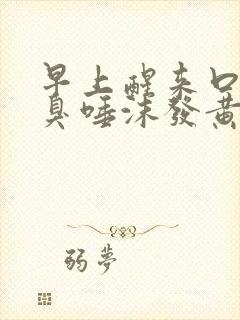 早上醒来口
臭唾沫發黃
弱夢